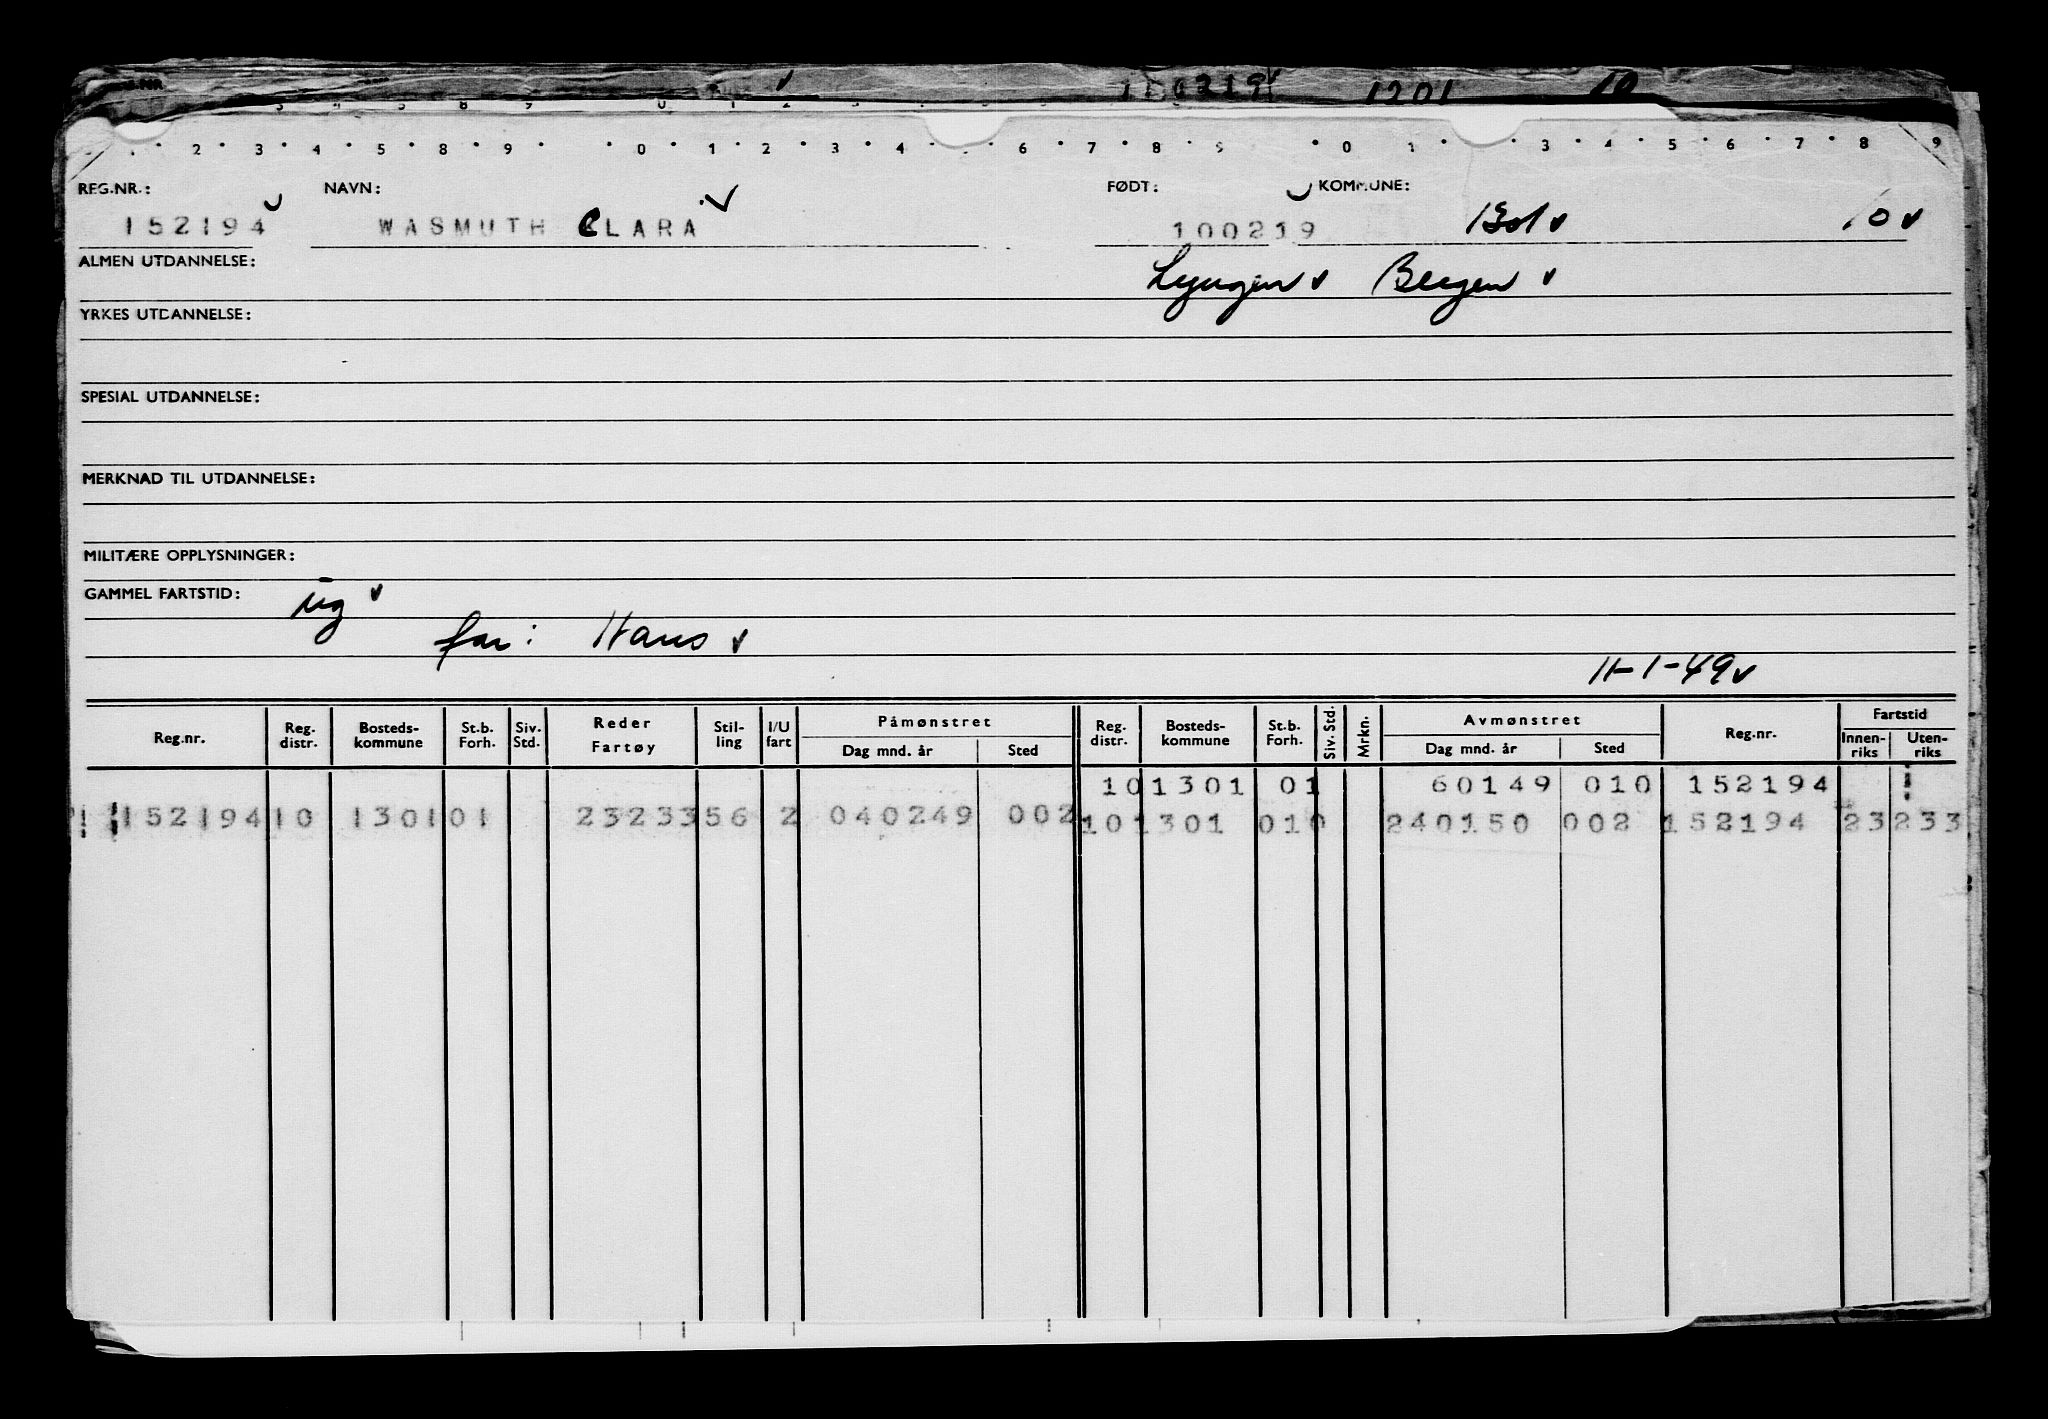 110219 1201 10
2 3 4 5 8 9 0 1 2 3 4 6 7 8 9 0 1 3 4 5 6 7 8 9
REG.NR.: NAVN: FØDT: KOMMUNE:
152194 WASMUTH CLARA 100219 1301 10
ALMEN UTDANNELSE: Lyngen Bergen
YRKES UTDANNELSE:
SPESIAL UTDANNELSE:
MERKNAD TIL UTDANNELSE:
MILITÆRE OPPLYSNINGER:
GAMMEL FARTSTID: ug
far: Hans
11-1-49
Reg.nr. Reg. distr. Bosteds-kommune St.b. Forh. Siv. Std. Reder Fartøy Stil-ling I/U fart Påmønstret Dag mnd. år Sted Reg. distr. Bosteds-kommune St.b. Forh. Siv. Std. Mrkn. Avmønstret Dag mnd. år Sted Reg.nr. Fartstid Innen-riks Uten-riks
10 1301 01 60149 010 152194
152194 10 1301 01 2323356 2 040249 002 10 1301 010 240150 002 152194 23 233